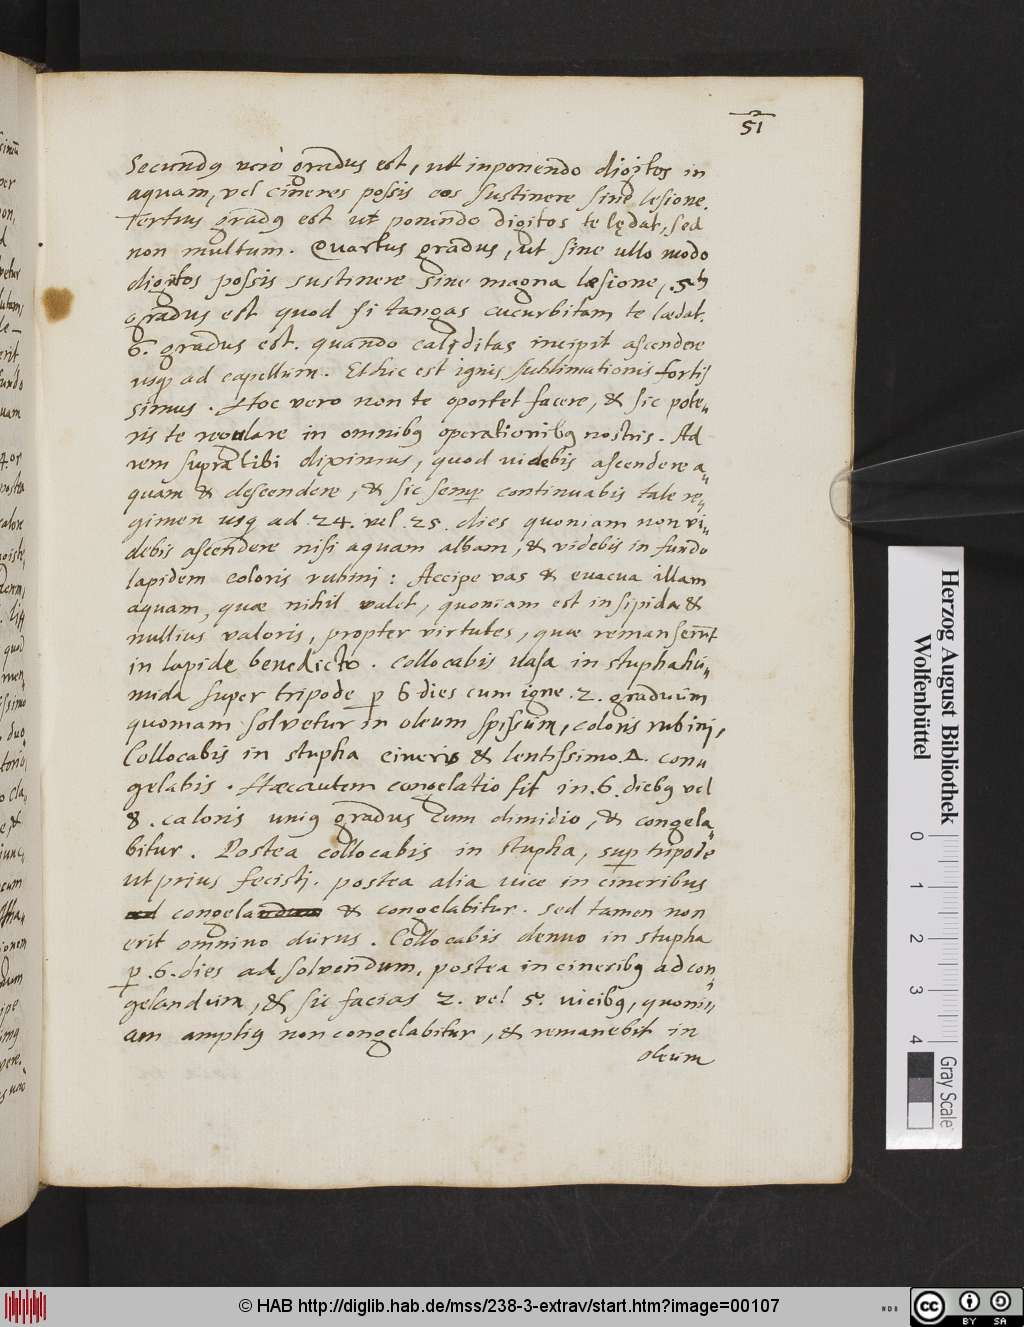 51
Secundꝰ verò gradus est, ut inponendo digitos in
aquam, vel cineres possis eos sustinere sine lesione.
Tertius gradꝰ est ut ponendo digitos te lędat, sed
non multum. Quartus gradus, ut sine ullo modo
digitos possis sustinere sine magna læsione, .5ᵗˢ
gradus est quod si tangas cucurbitam te lædat.
6. gradus est. quando caliditas incipit ascendere
usqꝫ ad capellum. Et hic est ignis sublimationis fortis
simus. Hoc vero non te oportet facere, & sic pote„
ris te regulare in omnibꝰ operationibꝰ nostris. Ad
rem supra tibi diximus, quod videbis ascendere a„
quam & descendere, & sic semꝑ continuabis tale re„
gimen usqꝫ ad .24. vel .25. dies quoniam non vi„
debis ascendere nisi aquam albam, & videbis in fundo
lapidem coloris rubini: Accipe vas & evacua illam
aquam, quæ nihil valet, quoniam est insipida &
nullius valoris, propter virtutes, quæ remanserūt
in lapide benedicto. Collocabis vasa in stupha hu„
mida super tripode ꝑ 6 dies cum igne .2. graduum
quoniam solvetur in oleum spissum, coloris rubini,
Collocabis in stupha cineris & lentissimo Δ. con„
gelabis. Hæc autem congelatio fit in .6. diebꝰ vel
8. caloris uniꝰ gradus cum dimidio, & congela„
bitur. Postea collocabis in stupha, suꝑ tripode
ut prius fecisti. postea alia vice in cineribus
ad congelandum & congelabitur. sed tamen non
erit omnino durus. Collocabis denuo in stupha
ꝑ .6. dies ad solvendum. postea in cineribꝰ ad con„
gelandum, & sic facias 2. vel 5. vicibꝰ, quoni„
am ampliꝰ non congelabitur, & remanebit in
oleum
Herzog August Bibliothek
Wolfenbüttel
0 1 2 3 4
Gray Scale
© HAB http://diglib.hab.de/mss/238-3-extrav/start.htm?image=00107
cc BY SA